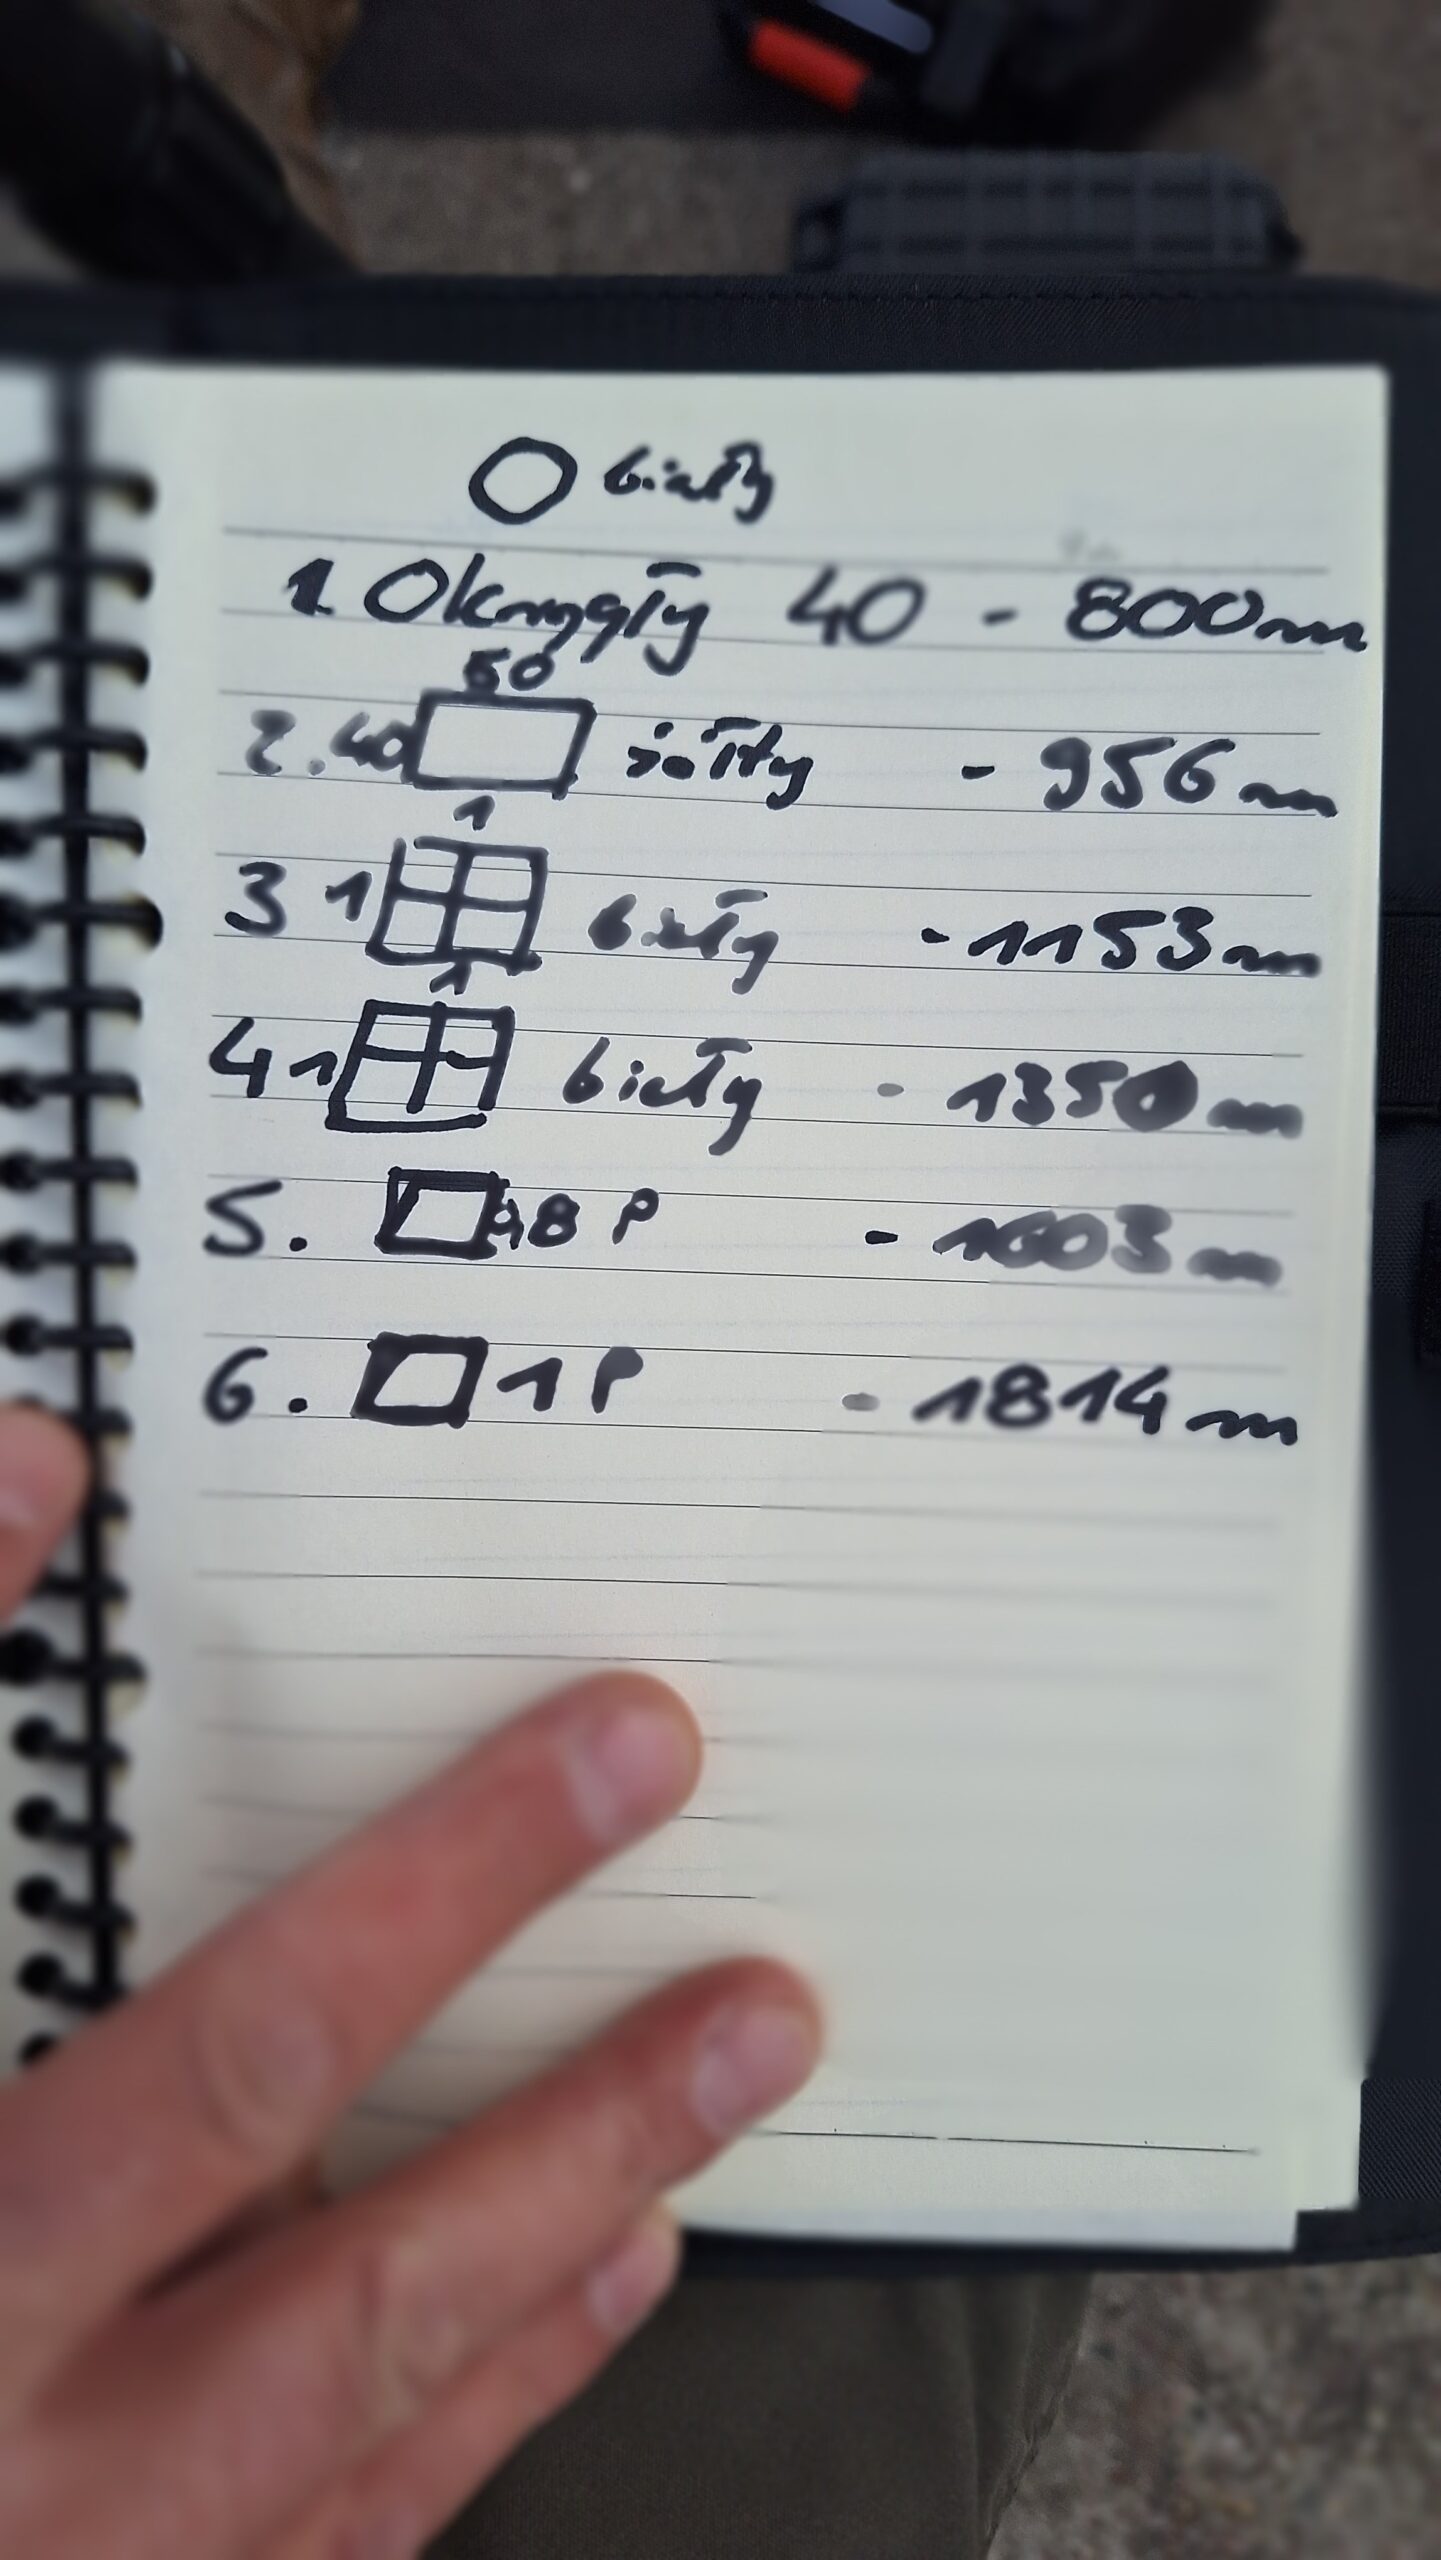 biały
1. Okrągły 40 - 800m
50
2. 40 żółty - 956m
1
3 1 biały - 1153m
1
4 1 biały - 1350m
5. P
6. 1 P - 1814m